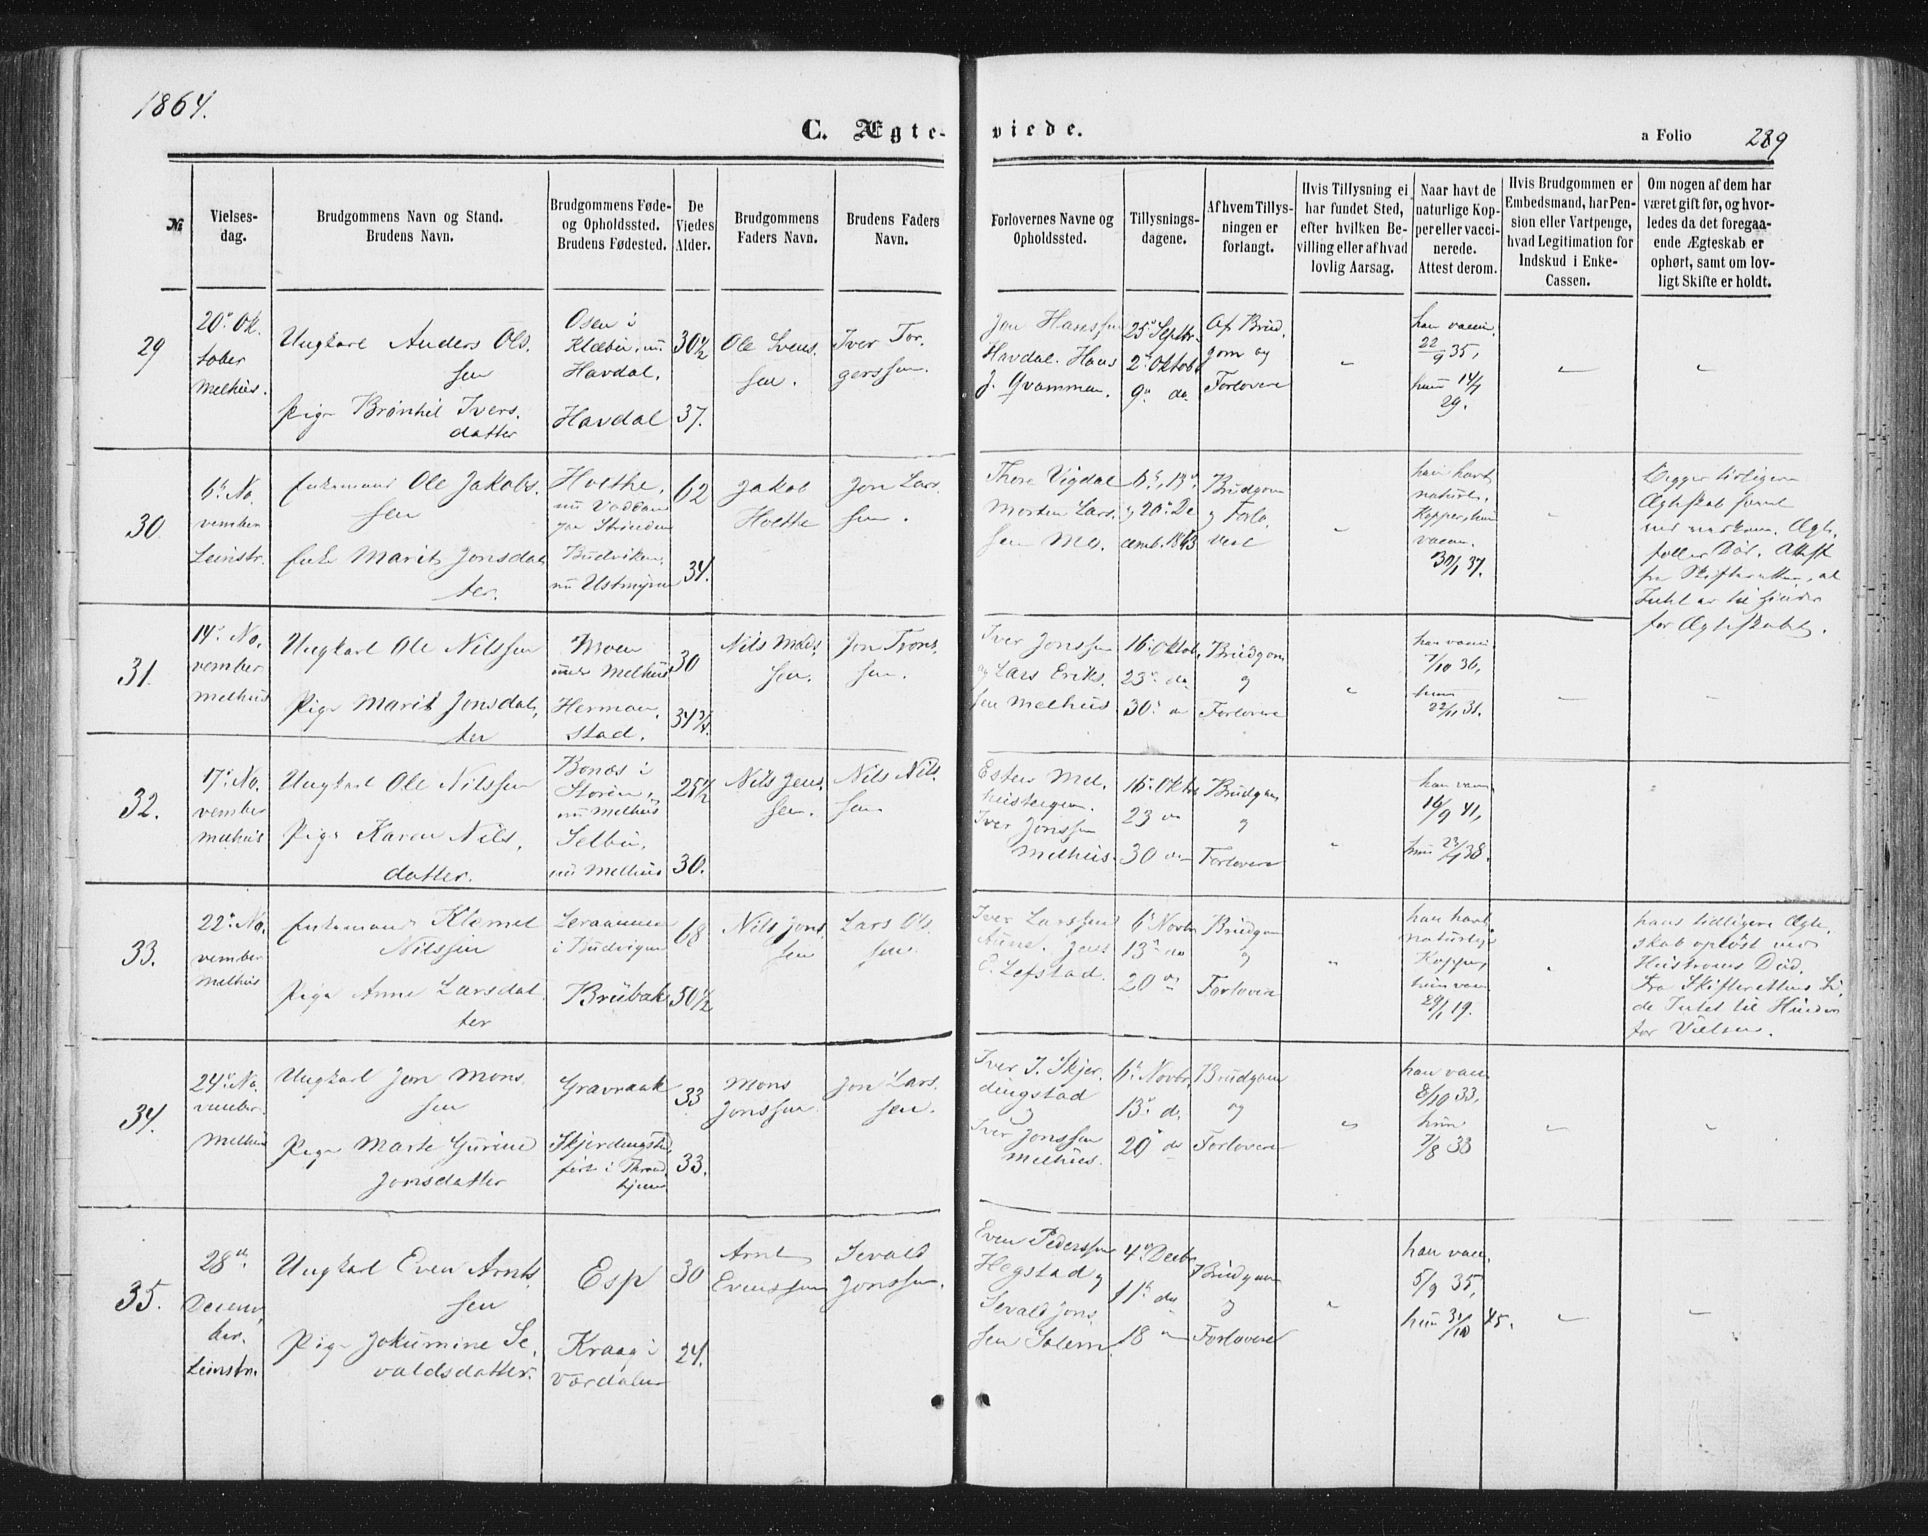 1864.
C. Ægte-viede.
a Folio 289
№
Vielses-
dag.
Brudgommens Navn og Stand.
Brudens Navn.
Brudgommens Føde-
og Opholdssted.
Brudens Fødested.
De
Viedes
Alder.
Brudgommens
Faders Navn.
Brudens Faders
Navn.
Forlovernes Navne og
Opholdssted.
Tillysnings-
dagene.
Af hvem Tillys-
ningen er
forlangt.
Hvis Tillysning ei
har fundet Sted,
efter hvilken Be-
villing eller af hvad
lovlig Aarsag.
Naar havt de
naturlige Kop-
per eller vacci-
nerede.
Attest derom.
Hvis Brudgommen er
Embedsmand, har Pen-
sion eller Vartpenge,
hvad Legitimation for
Indskud i Enke-
Cassen.
Om nogen af dem har
været gift før, og hvor-
ledes da det foregaa-
ende Ægteskab er
ophørt, samt om lov-
ligt Skifte er holdt.
29
20de Ok.
tober
Melhus.
Ungkarl Anders Ols.
sen
Pige Brønhil Ivers.
datter
Osen i
Klæbu, nu
Havdal.
Havdal
30½
37.
Ole Svens.
sen.
Iver Tor.
gerssen.
Jon Hanssen
Havdal. Hans
J. Qvammen.
25de Septbr.
2de Oktob
9de do
Af Brud.
gom og
Forlovere
han vacci.
22/9 35,
hun 14/7
29.
30.
6te No.
vember
Leinstr.
Enkemand Ole Jakobs.
sen
Enke Marit Jonsdat
ter.
Hoethe,
62
34.
Jakob
Hoethe
Jon Lars.
sen.
Thore Vigdal
Morten Lars.
sen Mo.
6te, 13de
og 20de De
cemb. 1863
Brudgom
og Forlo.
vere
han havt
naturl.
Kopper, hun
vaccin.
30/1 37.
Begges tidligere
Ægteskab
for Ægteskabet.
31.
14de No.
vember
Melhus
Ungkarl Ole Nilssen
Pige Marit Jonsdat,
ter
Moen
under Melhus
Herman,
stad.
30
34¾.
Nils Mads,
sen.
Jon Trons,
sen.
Iver Jonssen
og Lars Eriks.
sen Melhus
16de Oktob,
23de do
30de do
Brudgom
og
Forlovere
han vacci
7/10 36,
hun
22/11 31.
32.
17de No.
vember
Melhus
Ungkarl Ole Nilssen
Pige Karen Nils,
datter.
Bones i
Støren,
nu Melhus
Selbu,
nu Melhus
25½
30.
Nils Jens,
sen.
Nils Nils.
sen
Esten Mel
husteigen.
Iver Jonssen
Melhus.
16de Oktob
23 do
30 do
Brudgom
og
Forlovere
han vacc.
16/9 41,
33.
22de No.
vember
Melhus
Enkemand Klemet
Nilssen
Pige Anne Larsdat.
ter
i Budvigen
Brubak
68
50½
Nils Jons
sen
Lars Ols
sen.
Iver Larssen
Aune. Jens
E. Lefstad.
6te Novbr
13de do
20 do
Brudgom
og
Forlovere
han havt
naturlige
Kopper,
hun vacc
29/1 19.
hans tidligere Ægte.
skab opløst ved
Hustruens Død.
Fra Skifterettens Si.
de Intet til Hinder
for Vielsen.
34.
24de No.
vember
Melhus
Ungkarl Jon Mons
sen
Pige Marte Gurine
Jonsdatter
Gravraak
Skjerdingstad
født i Thrond
hjem
33
33.
Mons
Jonssen
Jon Lars.
sen.
Iver I. Skjer.
dingstad
og
Iver Jonssen
Melhus.
6te Novbr
13de do.
20de do
Brudgom
og
Forlovere
han vacc
8/10 33,
hun
7/8 33
35.
28de
Decem,
ber.
Leinstr.
Ungkarl Even Arnts
sen
Pige Jokumine Se,
valdsdatter.
Esp
Kraag i
Værdalen
30
24.
Arnt
Evenssen
Sevald
Jonssen.
Even Pederssen
Hegstad og
Sevald Jons
sen Solem.
4de Decbr
11te do
18 do
Brudgom
og
Forlovere
han vacc.
5/9 35,
hun 31/10 45.